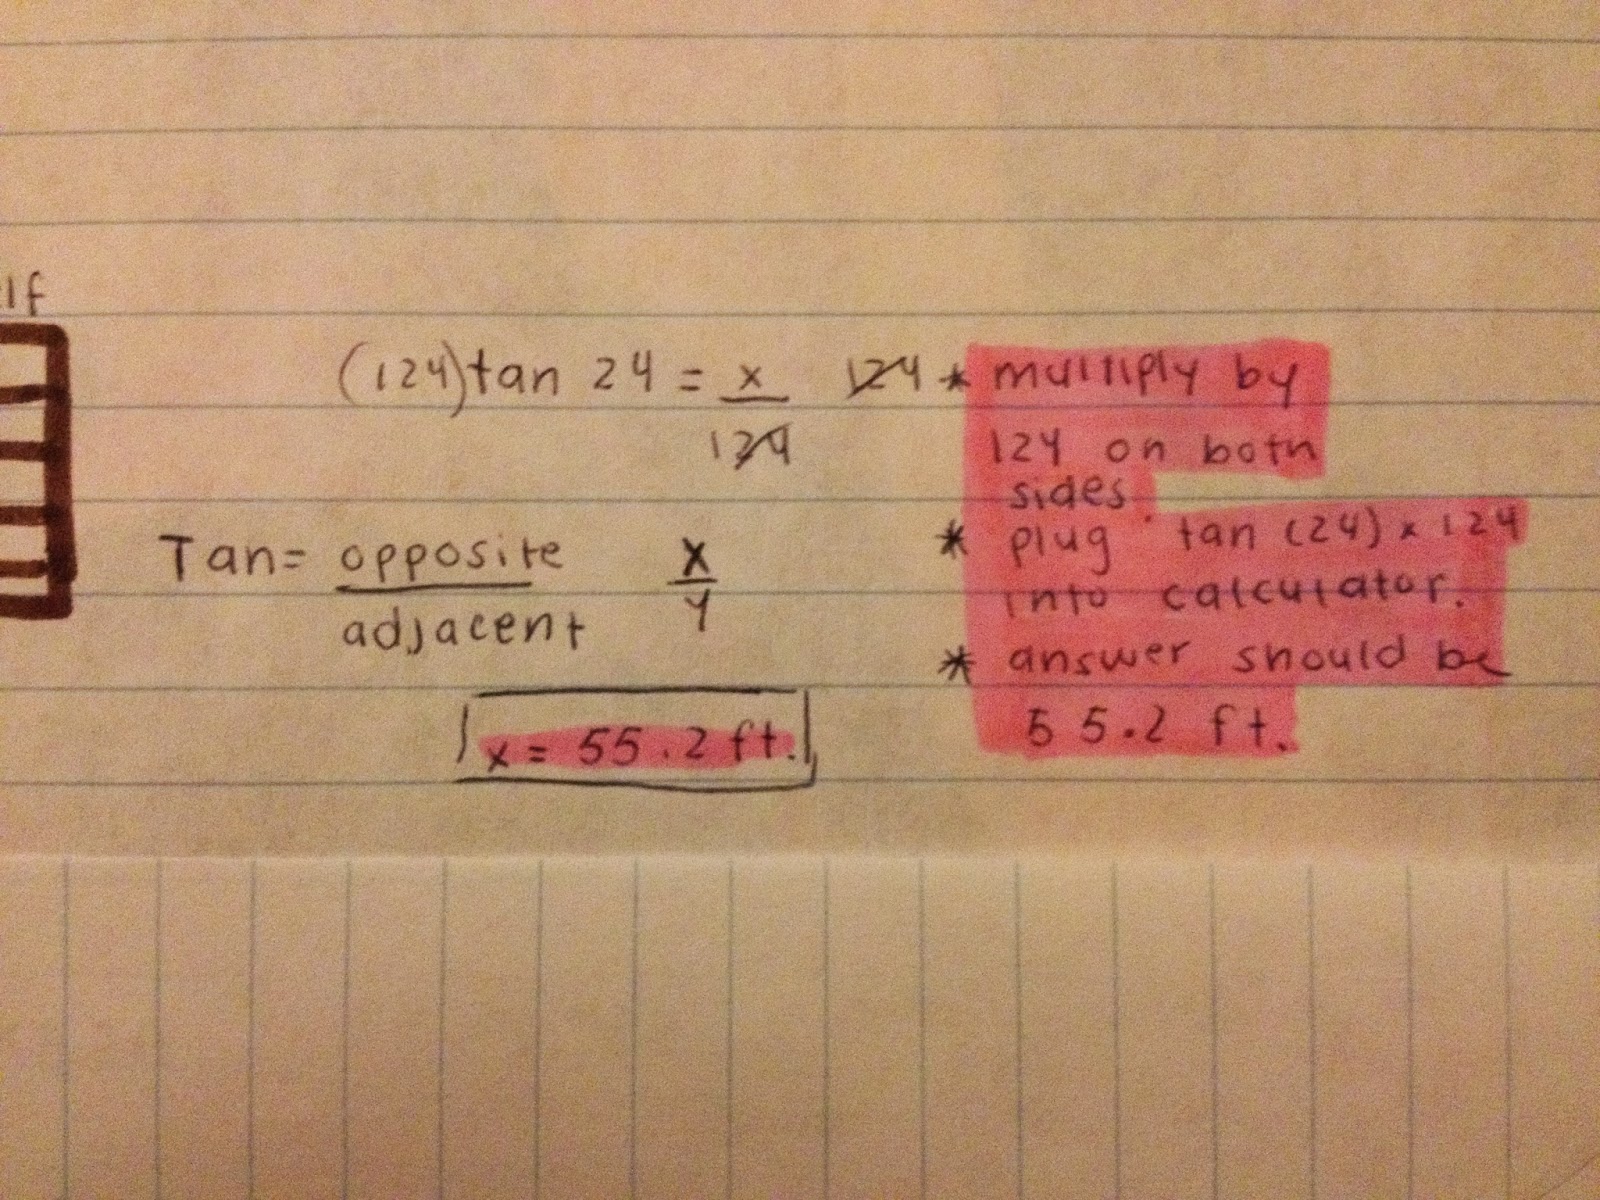 lf
(124)tan 24 = x/124 124
Tan= opposite/adjacent x/y
x = 55.2 ft.
* multiply by
124 on both
sides.
* plug tan (24) x 124
into calculator.
* answer should be
55.2 ft.